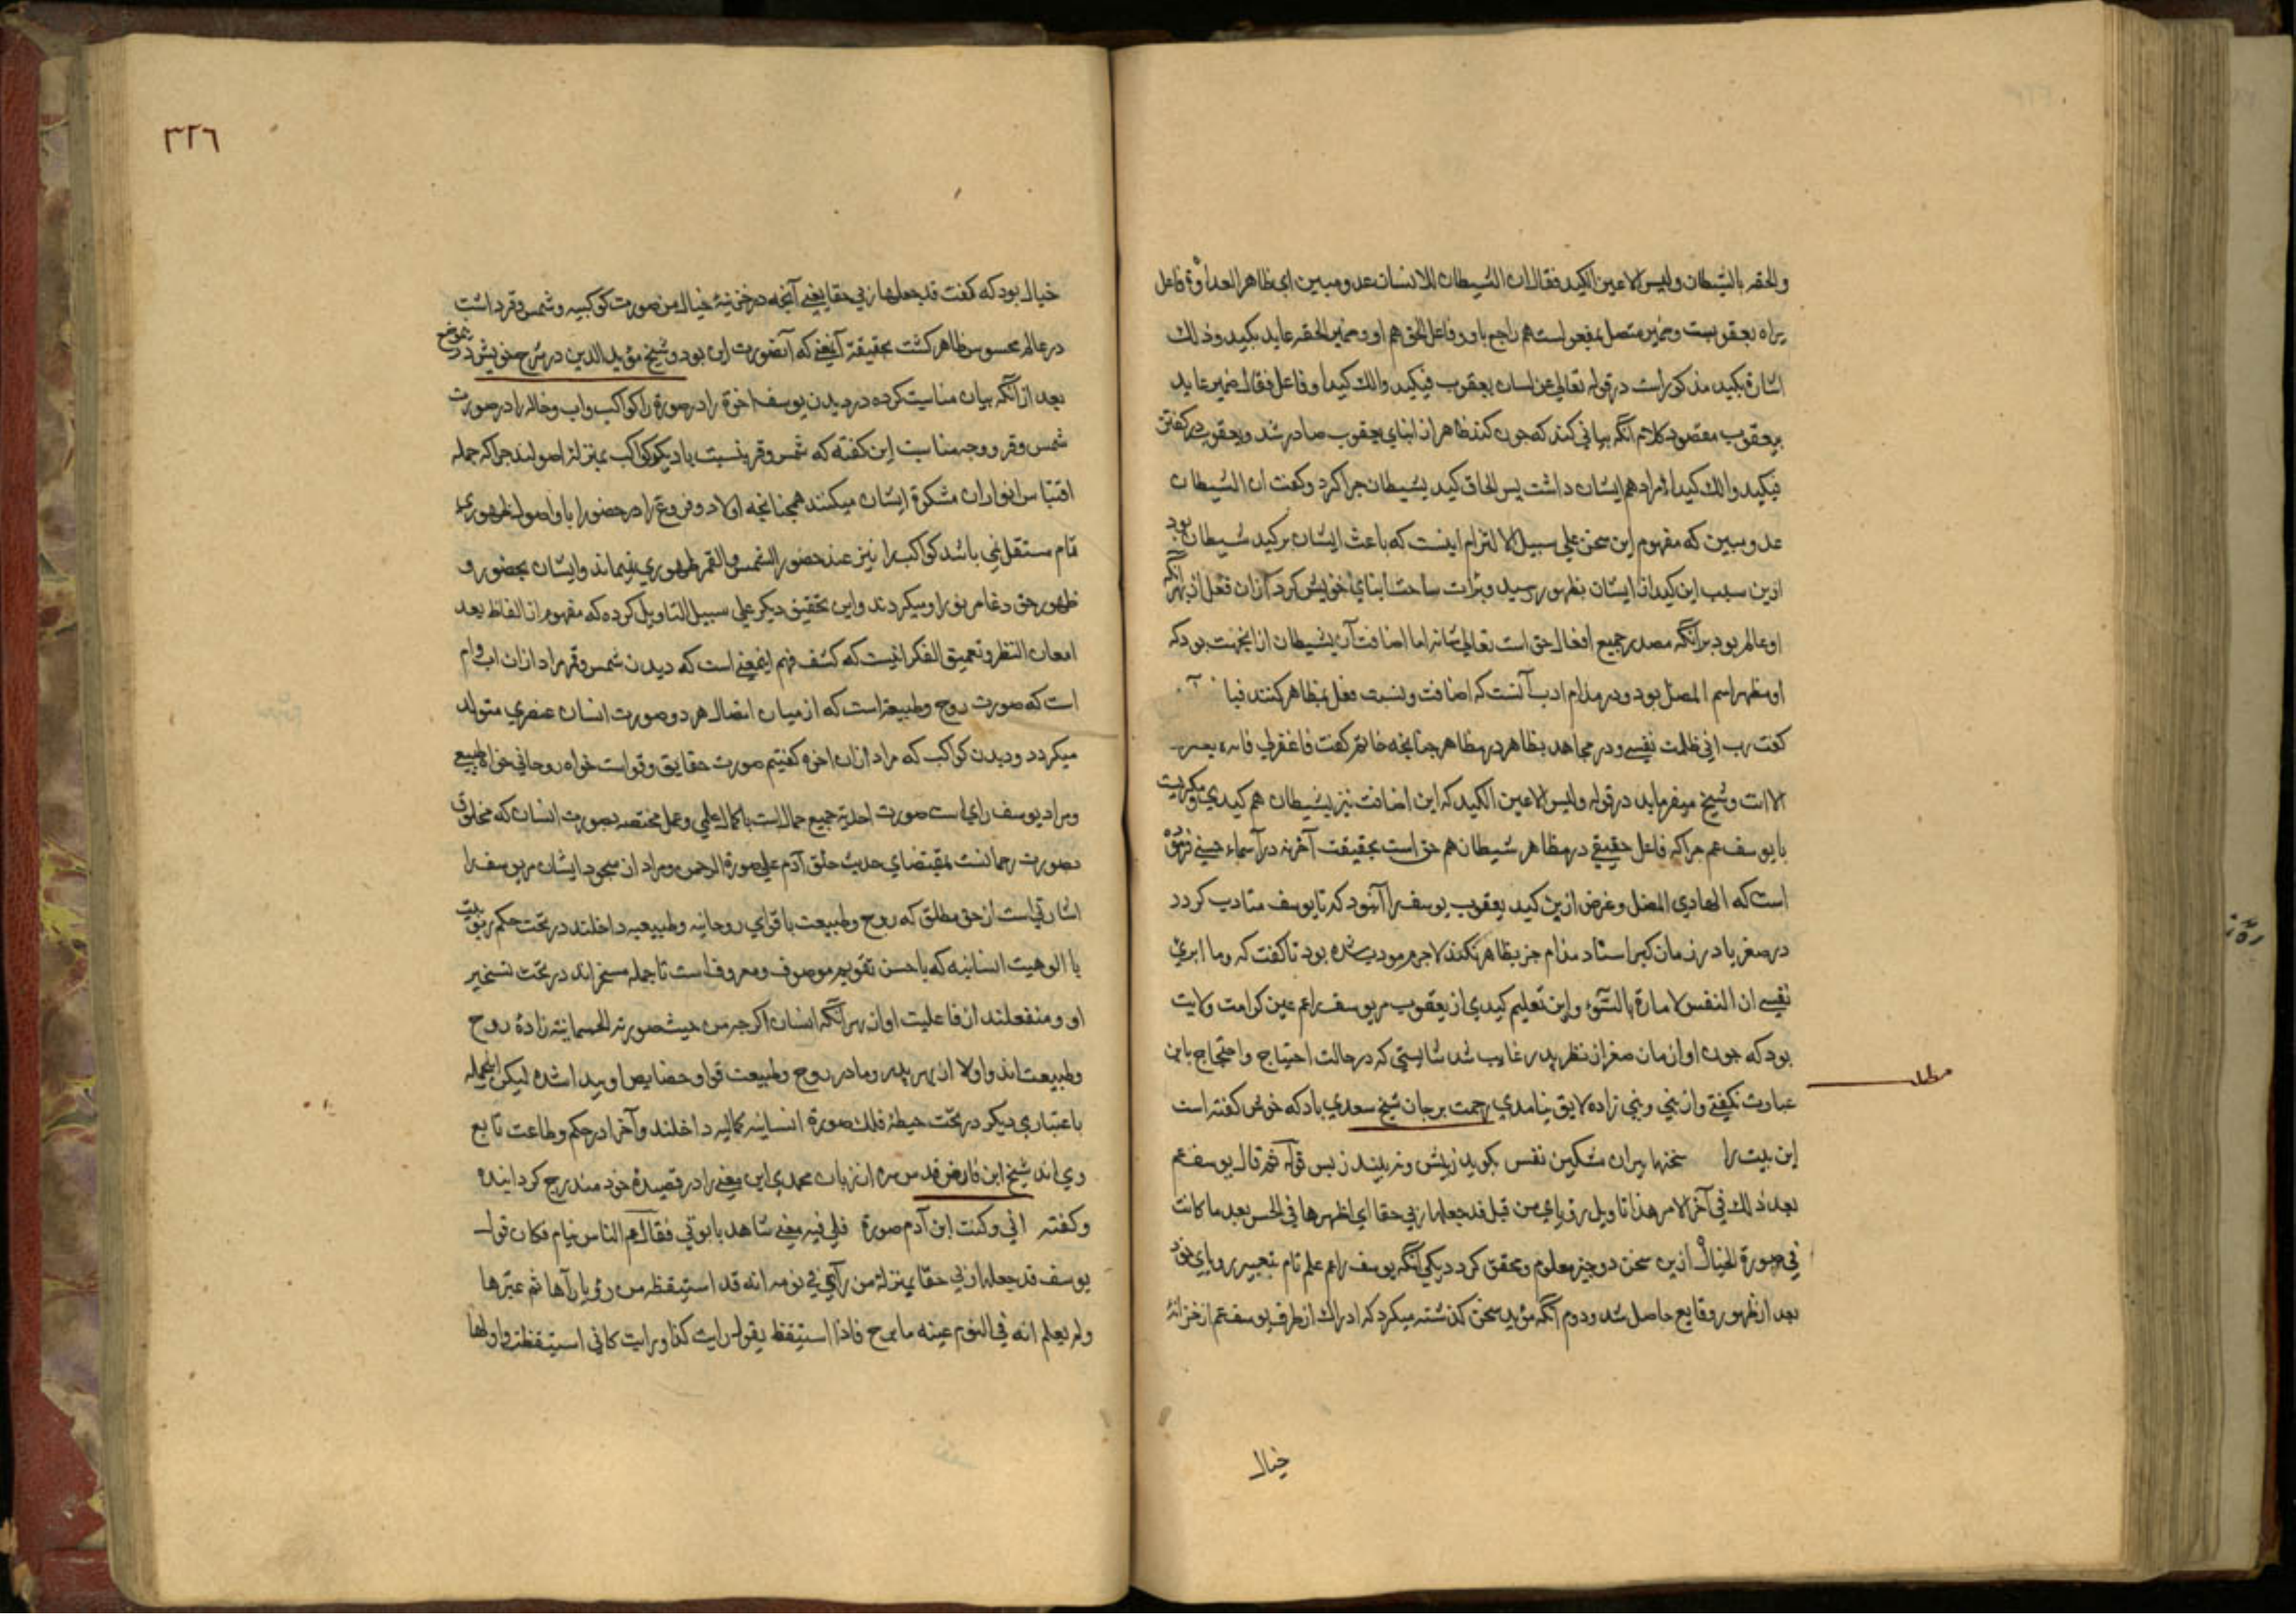 والحقه بالشیطان ولیس الا عین الکید فقال ان الشیطان للانسان عدو مبین ای ظاهر العداوة فاعل
یراه یعقوبست وضمیر متصل بمفعول است هم راجع باو وفاعل الحق هم او وضمیر الحقه عاید بکید وذلک
اشارة بکید مذکور است در قوله تعالی عن لسان یعقوب فیکیدوا لک کیدا وفاعل فقال ضمیر عاید
بیعقوب مقصود کلام آنکه بیانی کند که چون کید ظاهر از ابنای یعقوب صادر شد ویعقوب در کفتن
فیکیدوا لک کیدا مراد هم ایشان داشت پس الحاق کید بشیطان چرا کرد وکفت ان الشیطان
عدو مبین که مفهوم این سخن علی سبیل الالتزام اینست که باعث ایشان بر کید شیطان بود
ازین سبب این کید از ایشان بظهور رسید وبرات ساحت ابنای خویش کرد از آن فعل از بهر آنکه
او عالم بود بر آنکه مصدر جمیع افعال حق است تعالی شانه اما اضافت آن بشیطان از انجهت بود که
او مظهر اسم المضل بود ودر مذام ادب آنست که اضافت ونسبت فعل بمظاهر کنند
کفت رب انی ظلمت نفسی ودر محامد بظاهر در مظاهر چنانچه خاتم کفت فاغفرلی فانه یغفر
الا انت وشیخ میفرماید در قوله ولیس الا عین الکید که این اضافت نیز بشیطان هم کیدی ومکریست
با یوسف عم چرا که فاعل حقیقی در مظاهر شیطان هم حق است بحقیقت آخر نه در اسماء حسنی
است که الهادی المضل وغرض ازین کید یعقوب یوسف را آن بود که تا یوسف متادب کردد
در صغر تا در زمان کبر اسناد مذام جز بظاهر نکند لاجرم مودب شده بود تا کفت که وما ابری
نفسی ان النفس لامارة بالسوء واین تعلیم کیدی از یعقوب مر یوسف را عم عین کرامت ولایت
بود که چون او از مان صغر از نظر پدر غایب شد شایستی که در حالت احتیاج واحتجاج باین
مطلب
عبارت نکفتی واز نبی ونبی زاده لایق نیامدی رحمت بر جان شیخ سعدی باد که خوش کفته است
این بیت را سخنها بیران شکین نفس بکوید ز پیش ونبیند ز پس قوله ثم قال یوسف عم
بعد ذلک فی آخر الامر هذا تاویل رؤیای من قبل قد جعلها ربی حقا ای اظهرها فی الحس بعد ما کانت
فی صورة الخیال ازین سخن دو چیز معلوم ومحقق کردد یکی آنکه یوسف را عم علم تام بتعبیر رویای خود
بعد از ظهور وقایع حاصل شد ودوم آنکه مؤید سخن کذشته میکردد که ادراک از طرف یوسف عم از خزانهٔ
خیال
٣٢٦
خیال بود که کفت قد جعلها ربی حقا یعنی آنچه در خزینهٔ خیال من صورت کوکبیه وشمس وقمر داشت
در عالم محسوس ظاهر کشت بحقیقة آن یعنی که آنصورت این بود وشیخ مؤید الدین در شرح خویش در موضع
بعد از آنکه بیان مناسبت کرده در دیدن یوسف اخوة را در صورة کواکب واب وخاله را در صورت
شمس وقمر ووجه مناسبت این کفته که شمس وقمر بنسبت با دیکر کواکب بمنزله اصولند چرا که جمله
اقتباس انوار از مشکوة ایشان میکنند همچنانچه اولاد وفروع را در حضور ابا واصول ظهوری
تام مستقل نمی باشد کواکب را نیز عند حضور الشمس والقمر ظهوری نمیماند وایشان بحضور و
ظهور حق دغام نور او میکردند واین تحقیق دیکر علی سبیل التاویل کرده که مفهوم از الفاظ بعد
امعان النظر وتعمیق الفکر اینست که کشف فهم اینمعنی است که دیدن شمس وقمر مراد ازان اب وام
است که صورت روح وطبیعت است که از میان اتصال هر دو صورت انسان عنصری متولد
میکردد ودیدن کواکب که مراد ازان اخوه کفتیم صورت حقایق وقواست خواه روحانی خواه طبیعی
ومراد یوسف رای است صورت احدیة جمیع جمال است با کمال علمی وعملی مختصه بصورت انسان که مخلوق
بصورت رحمانست بمقتضای حدیث خلق آدم علی صورة الرحمن ومراد از سجود ایشان مر یوسف را
اشارتی است از حق مطلق که روح وطبیعت با قوای روحانیه وطبیعیه داخلند در تحت حکم ربوبیت
با الوهیت انسانیه که باحسن تقویم موصوف ومعروف است تا جمله مسخر اند در تحت تسخیر
او ومنفعلند از فاعلیت او از بهر آنکه انسان اکرچه من حیث صورته الجسمانیة زادهٔ روح
وطبیعت اند واولا از بهر پدر ومادر روح وطبیعت قوا وخصایص او پیدا شده لیکن اینجمله
باعتباری دیکر در تحت حیطهٔ فلک صورة انسانیه کمالیه داخلند وآخرا در حکم وطاعت تابع
وی اند شیخ ابن فارض قدس سره از زبان محمدی این معنی را در قصیدهٔ خود مندرج کردانیده
وکفته انی وکنت ابن آدم صورة فلی فیه معنی شاهد بابوتی فقال عم الناس نیام فکان قول
یوسف قد جعلها ربی حقا بمنزلة من رآی فی نومه انه قد استیقظ من رؤیا رآها ثم عبرها
ولم یعلم انه فی النوم عینه ما برح فاذا استیقظ یقول رایت کذا ورایت کانی استیقظت واولها